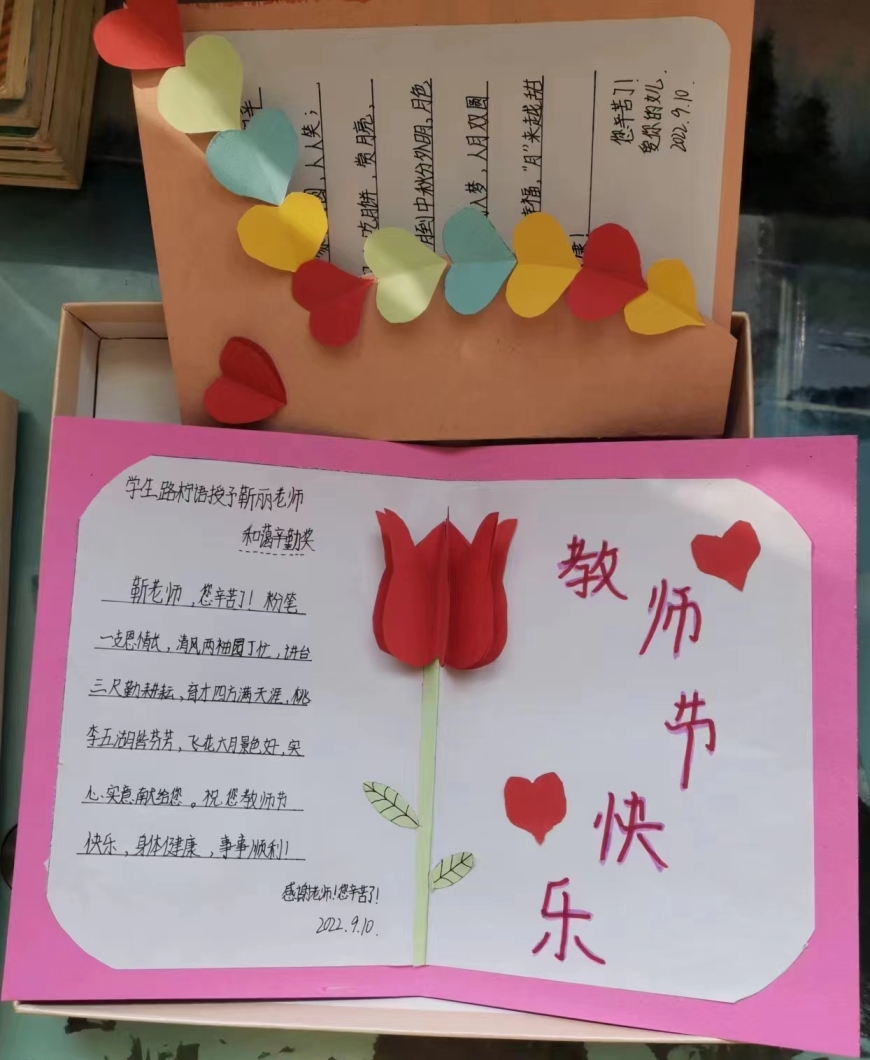 人人笑；
吃月饼，赏月亮，
到中秋分外明，月色
入梦，人月双圆
幸福，“月”来越甜
康！
您辛苦了！
爱你的女儿
2022.9.10.
学生路柠语授予靳丽老师
和蔼辛勤奖
靳老师，您辛苦了！粉笔
一支恩情长，清风两袖园丁忙，讲台
三尺勤耕耘，育才四方满天涯，桃
李五湖皆芬芳，飞花六月景色好，实
心实意献给您。祝您教师节
快乐，身体健康，事事顺利！
感谢老师！您辛苦了！
2022.9.10.
教师节快乐